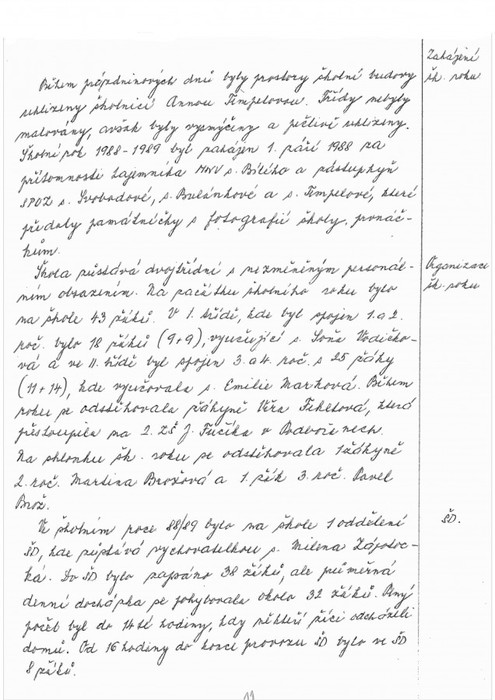 Zahájení
šk. roku
Během prázdninových dnů byly prostory školní budovy
uklizeny školnicí Annou Timpelovou. Třídy nebyly
malovány, avšak byly vysmýčeny a pečlivě uklizeny.
Školní rok 1988-1989 byl zahájen 1. září 1988 za
přítomnosti tajemníka MNV s. Bílého a zástupkyň
SPOZ s. Svobodové, s. Bulánkové a s. Timpelové, které
předaly památníčky s fotografií školy, prvňáč-
kům.
Organizace
šk. roku
Škola zůstává dvojtřídní s nezměněným personál-
ním obsazením. Na začátku školního roku bylo
na škole 43 žáků. V I. třídě, kde byl spojen 1. a 2.
roč. bylo 18 žáků (9+9), vyučující s. Soňa Vodičko-
vá a ve II. třídě byl spojen 3. a 4. roč. s 25 žáky
(11+14), kde vyučovala s. Emilie Marková. Během
roku se odstěhovala žákyně Věra Feketová, která
přestoupila na 2. ZŠ J. Fučíka v Podbořanech.
Na sklonku šk. roku se odstěhovala 1 žákyně
2. roč. Martina Brožová a 1. žák 3. roč. Pavel
Brož.
ŠD.
Ve školním roce 88/89 bylo na škole 1 oddělení
ŠD, kde zůstává vychovatelkou s. Milena Zápotoc-
ká. Do ŠD bylo zapsáno 38 žáků, ale průměrná
denní docházka se pohybovala okolo 32 žáků. Plný
počet byl do 14 té hodiny, kdy někteří žáci odcházeli
domů. Od 16 hodiny do konce provozu ŠD bylo ve ŠD
8 žáků.